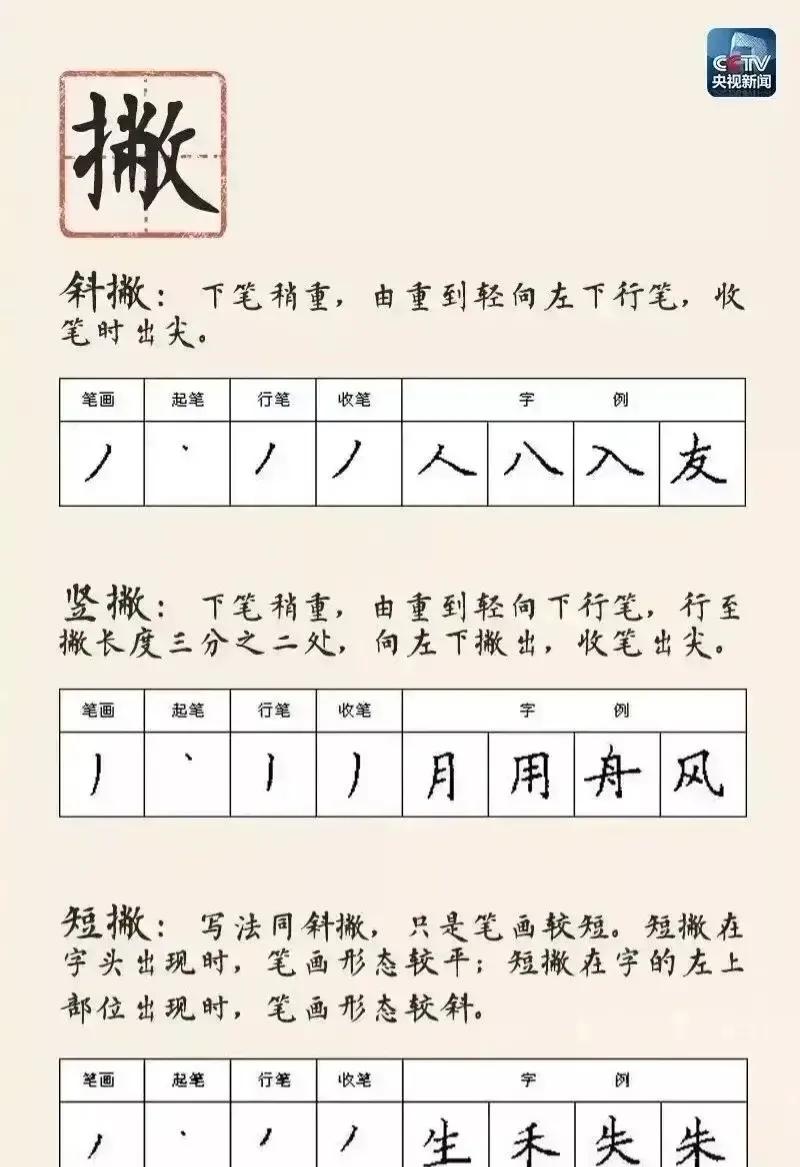 CCTV
央视新闻
撇
斜撇：下笔稍重，由重到轻向左下行笔，收
笔时出尖。
笔画 起笔 行笔 收笔 字例
丿 丶 丿 丿 人 八 入 友
竖撇：下笔稍重，由重到轻向下行笔，行至
撇长度三分之二处，向左下撇出，收笔出尖。
笔画 起笔 行笔 收笔 字例
丿 丶 丨 丿 月 用 舟 风
短撇：写法同斜撇，只是笔画较短。短撇在
字头出现时，笔画形态较平；短撇在字的左上
部位出现时，笔画形态较斜。
笔画 起笔 行笔 收笔 字例
丿 丶 丿 丿 生 禾 失 朱